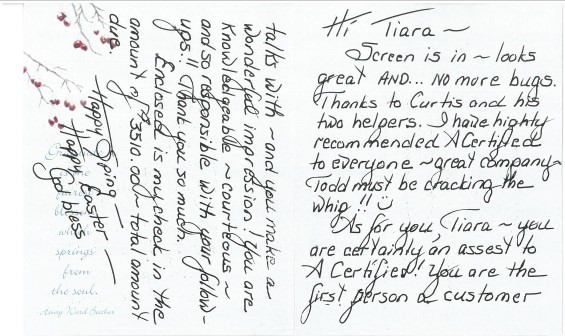 Hi Tiara ~
Screen is in ~ looks
great AND... No more bugs.
Thanks to Curtis and his
two helpers. I have highly
recommended A Certified
to everyone ~ great company ~
Todd must be cracking the
whip !!
As for you, Tiara ~ you
are certainly an assest to
A Certified! You are the
first person a customer
talks with ~ and you make a
wonderful impression! You are
knowledgeable ~ courteous ~
and so responsible with your follow-
ups!! Thank you so much.
Enclosed is my check in the
amount of $3510.00 ~ total amount
due.
Happy Spring —
Happy Easter —
God bless
springs
from
the soul.
Henry Ward Beecher